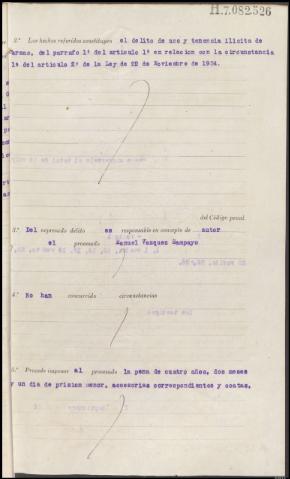 H.7.082526
2.ª Los hechos referidos constituyen el delito de uso y tenencia ilicita de
armas, del parrafo 1º del articulo 1º en relacion con la circunstancia
1ª del articulo 2º de la Ley de 22 de Noviembre de 1934.
del Código penal.
3.ª Del expresado delito es responsable en concepto de autor
el procesado Manuel Vazquez Sampayo
4.ª No han concurrido circunstancias
5.ª Procede imponer al procesado la pena de cuatro años, dos meses
y un dia de prision menor, accesorias correspondientes y costas.